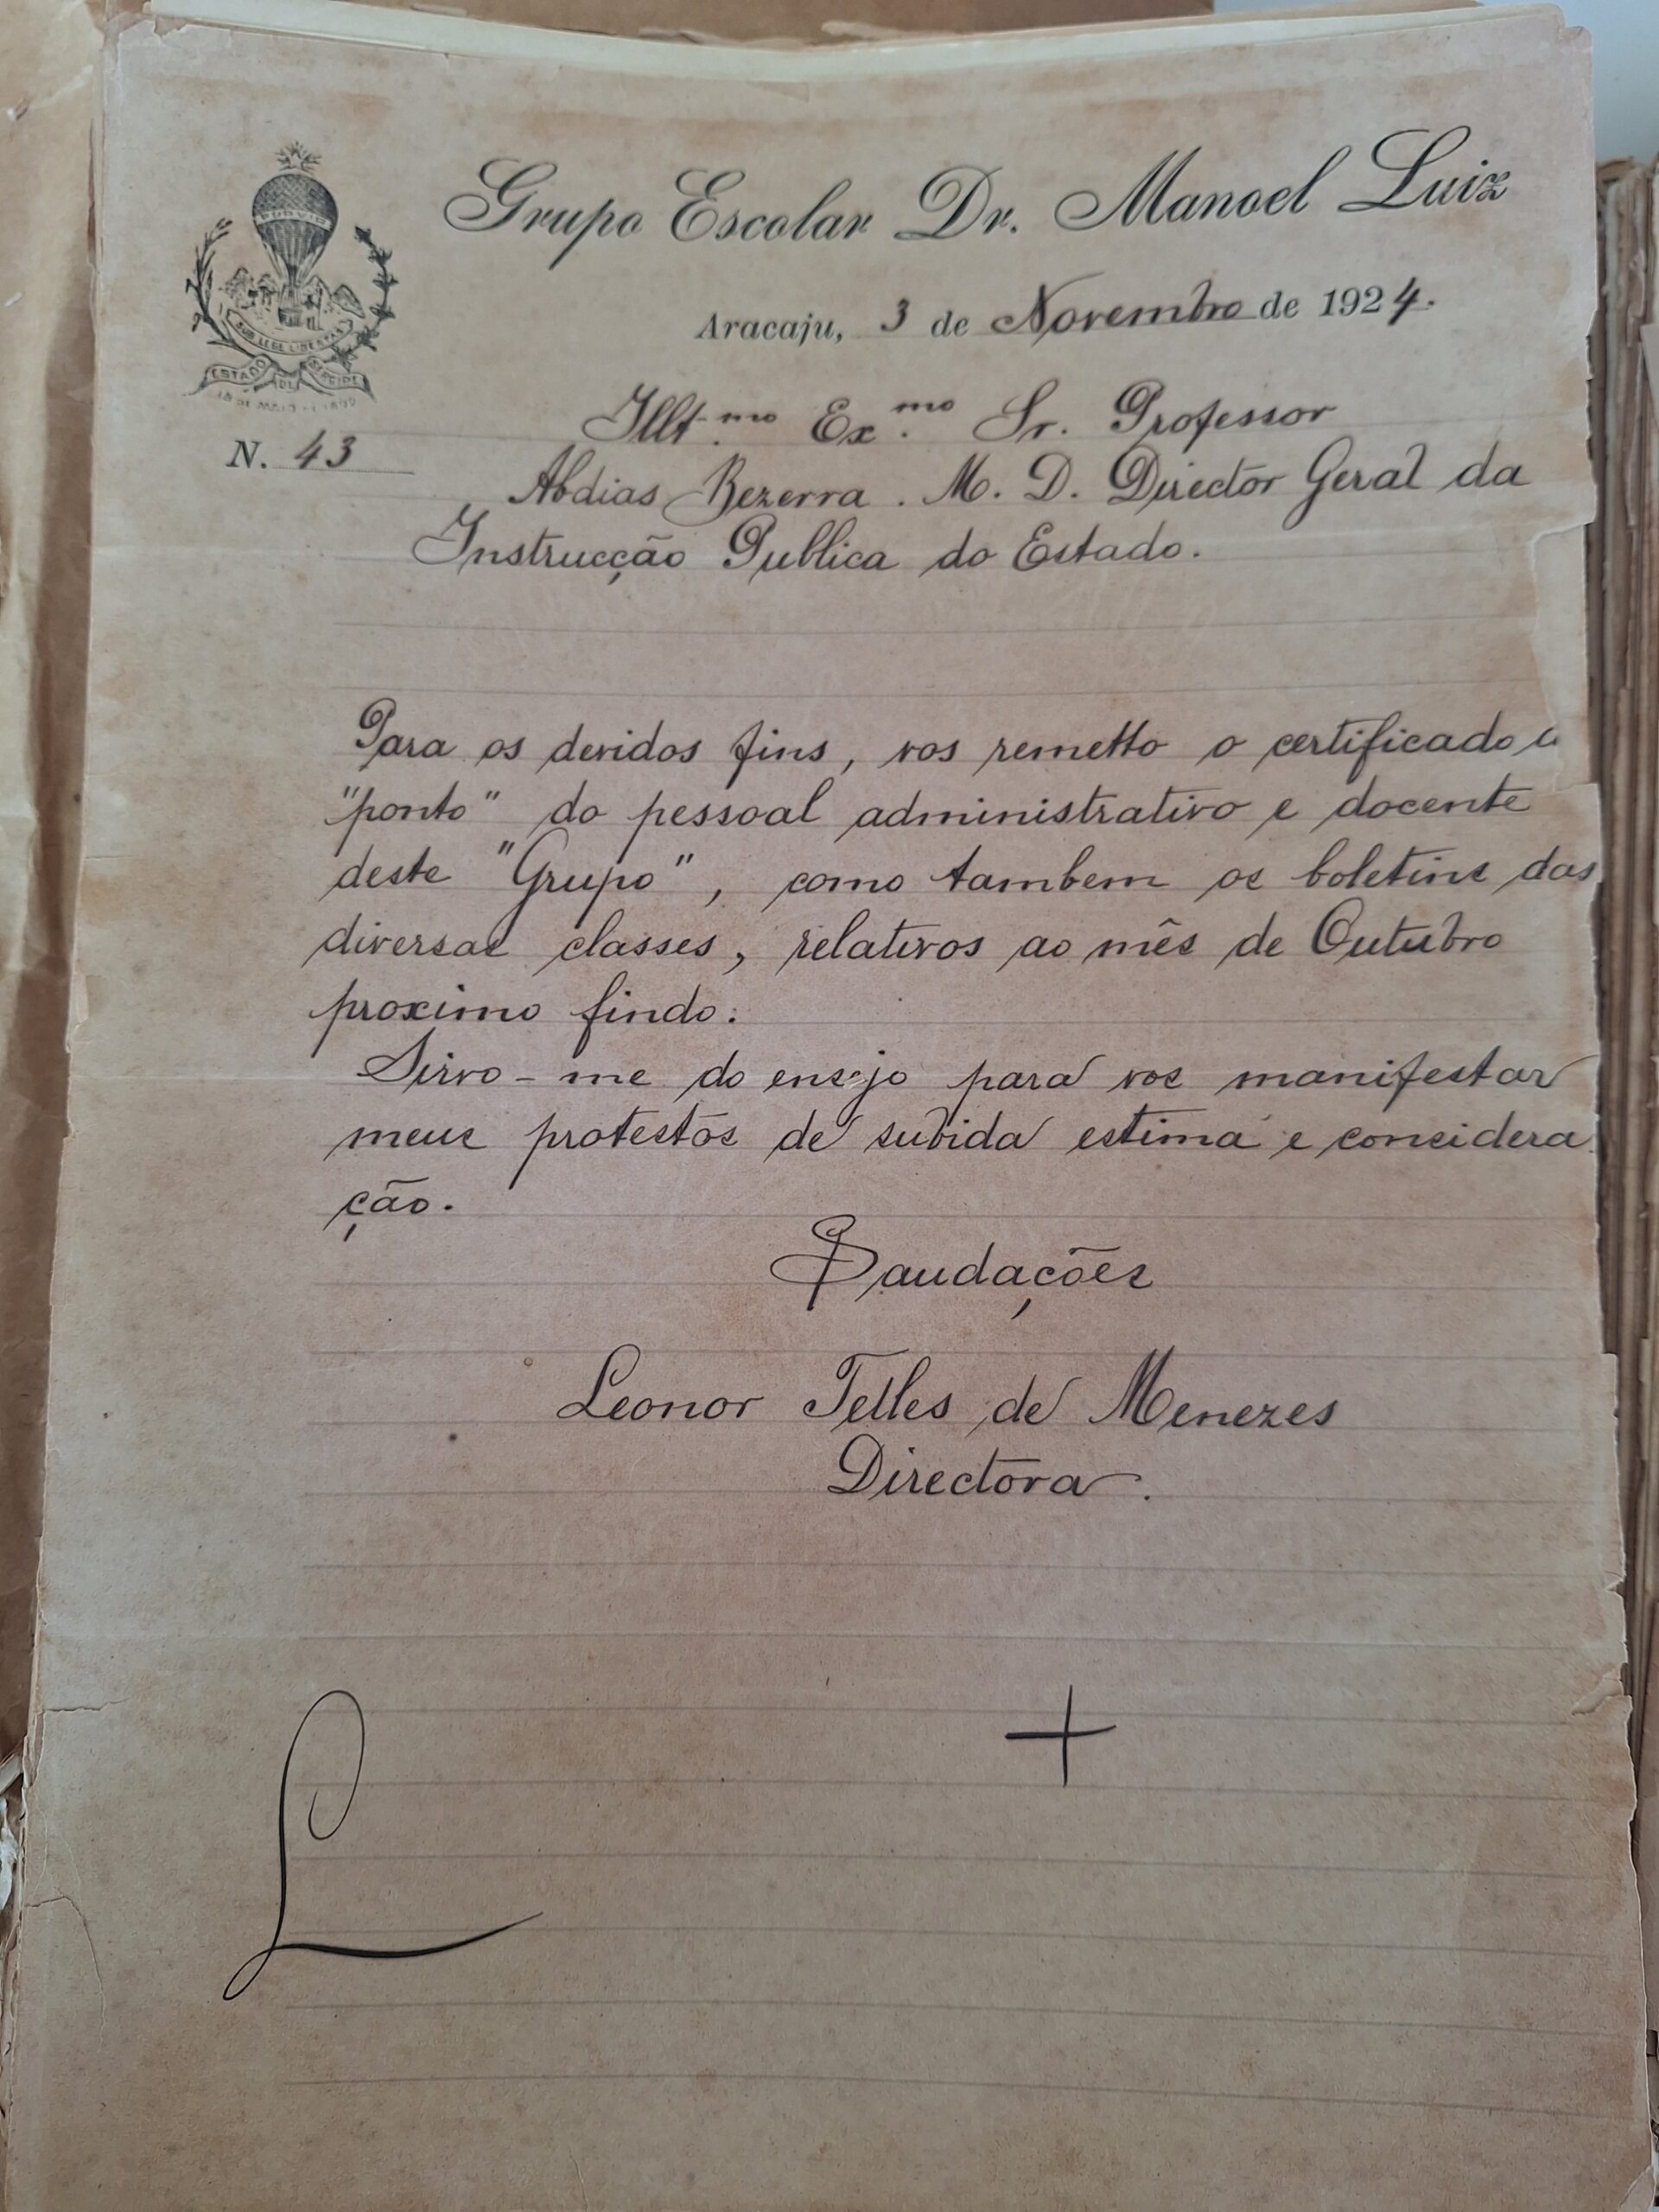 Grupo Escolar Dr. Manoel Luiz
Aracaju, 3 de Novembro de 1924.
SUB LEGE LIBERTAS
ESTADO DE SERGIPE
18 DE MAIO - 1892
N. 43
Illt.mo Ex.mo Sr. Professor
Abdias Bezerra. M. D. Director Geral da
Instrucção Publica do Estado.
Para os devidos fins, vos remetto o certificado
"ponto" do pessoal administrativo e docente
deste "Grupo", como tambem os boletins das
diversas classes, relativos ao mês de Outubro
proximo findo.
Sirvo-me do ensejo para vos manifestar
meus protestos de subida estima e considera
ção.
Saudações
Leonor Telles de Menezes
Directora.